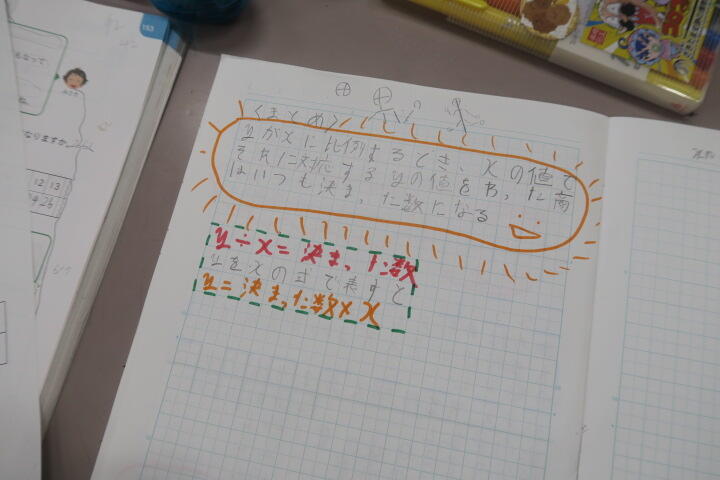 〈まとめ〉
yがxに比例するとき、xの値で
それに対応するyの値をわった商
はいつも決まった数になる
y÷x=決まった数
yをxの式で表すと
y=決まった数×x
153
なりますか。
12 13